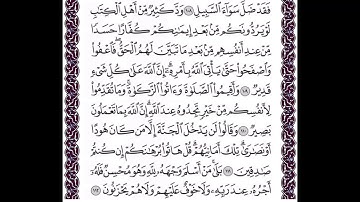 فَقَدْ ضَلَّ سَوَآءَ ٱلسَّبِيلِ ١٠٨ وَدَّ كَثِيرٌ مِّنْ أَهْلِ ٱلْكِتَٰبِ
لَوْ يَرُدُّونَكُم مِّنۢ بَعْدِ إِيمَٰنِكُمْ كُفَّارًا حَسَدًا
مِّنْ عِندِ أَنفُسِهِم مِّنۢ بَعْدِ مَا تَبَيَّنَ لَهُمُ ٱلْحَقُّ ۖ فَٱعْفُوا۟
وَٱصْفَحُوا۟ حَتَّىٰ يَأْتِىَ ٱللَّهُ بِأَمْرِهِۦٓ ۗ إِنَّ ٱللَّهَ عَلَىٰ كُلِّ شَىْءٍ
قَدِيرٌ ١٠٩ وَأَقِيمُوا۟ ٱلصَّلَوٰةَ وَءَاتُوا۟ ٱلزَّكَوٰةَ ۚ وَمَا تُقَدِّمُوا۟
لِأَنفُسِكُم مِّنْ خَيْرٍ تَجِدُوهُ عِندَ ٱللَّهِ ۗ إِنَّ ٱللَّهَ بِمَا تَعْمَلُونَ
بَصِيرٌ ١١٠ وَقَالُوا۟ لَن يَدْخُلَ ٱلْجَنَّةَ إِلَّا مَن كَانَ هُودًا
أَوْ نَصَٰرَىٰ ۗ تِلْكَ أَمَانِيُّهُمْ ۗ قُلْ هَاتُوا۟ بُرْهَٰنَكُمْ إِن كُنتُمْ
صَٰدِقِينَ ١١١ بَلَىٰ مَنْ أَسْلَمَ وَجْهَهُۥ لِلَّهِ وَهُوَ مُحْسِنٌ فَلَهُۥٓ
أَجْرُهُۥ عِندَ رَبِّهِۦ وَلَا خَوْفٌ عَلَيْهِمْ وَلَا هُمْ يَحْزَنُونَ ١١٢